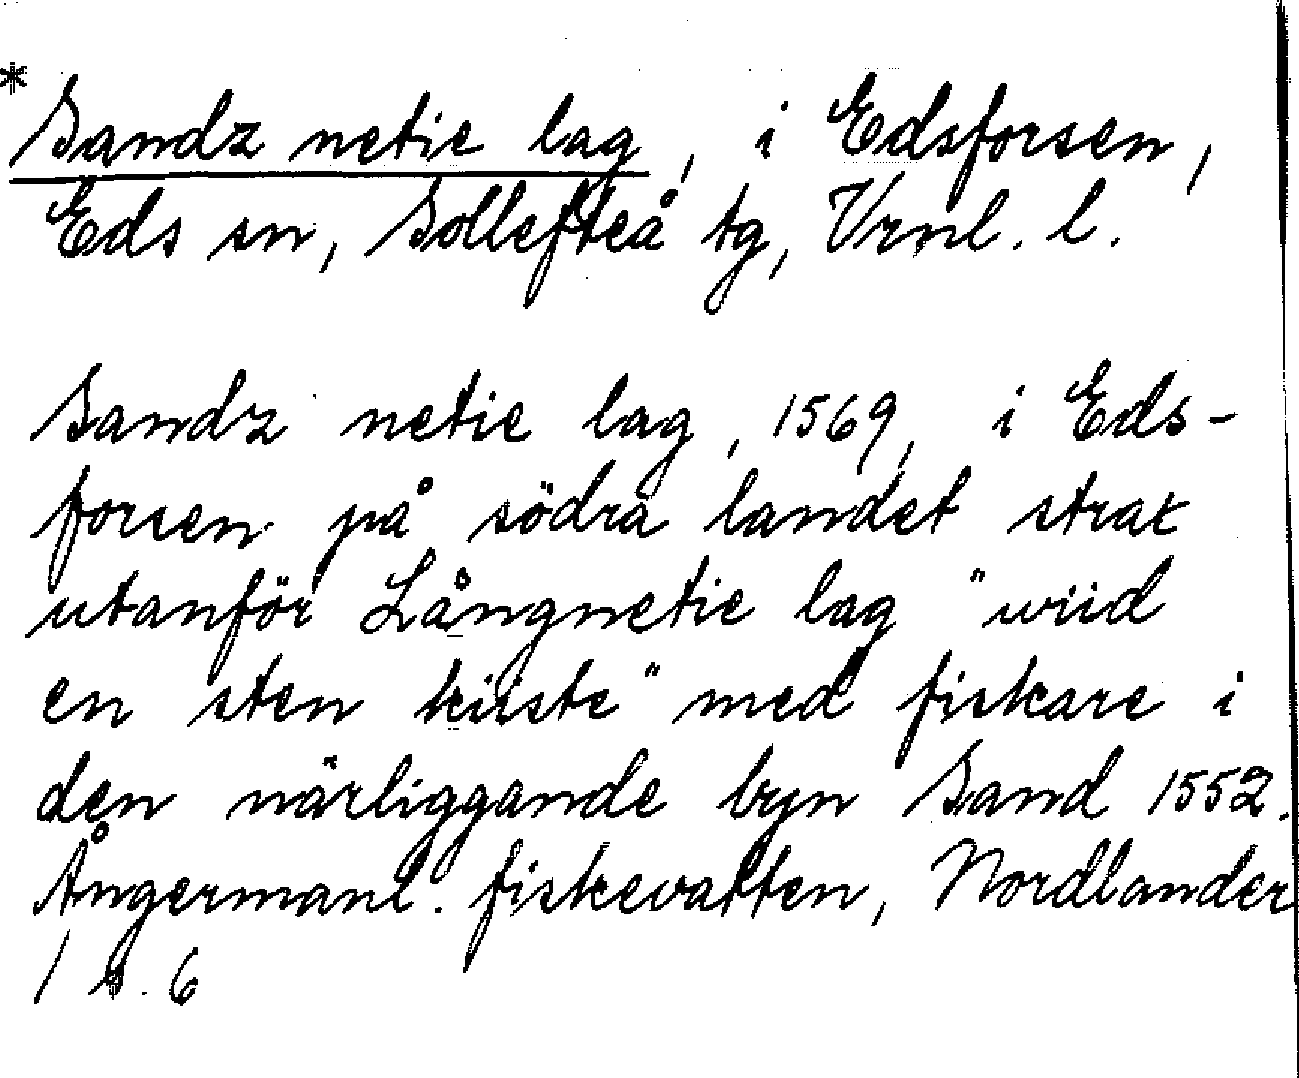 * Sandz netie lag, i Edsforsen,
Eds sn, Sollefteå tg, Vrnl. l.
Sandz netie lag, 1569, i Eds-
forsen på södra landet strax
utanför Långnetie lag "wiid
en sten kiiste" med fiskare i
den närliggande byn Sand 1552.
Ångermanl. fiskevatten, Nordlander
1 s. 6